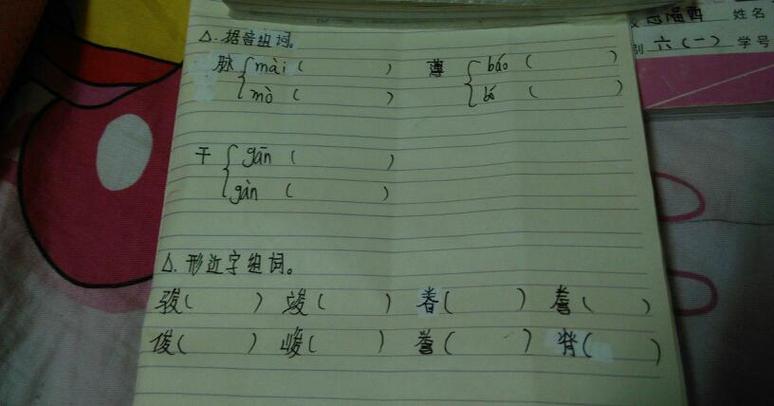 △.据音组词。
脉{mài( ) 薄{báo( )
mò( ) bó( )
干{gān( )
gàn( )
△.形近字组词。
骏( ) 竣( ) 眷( ) 誊( )
俊( ) 峻( ) 誉( ) 脊( )
姓名
六(一) 学号